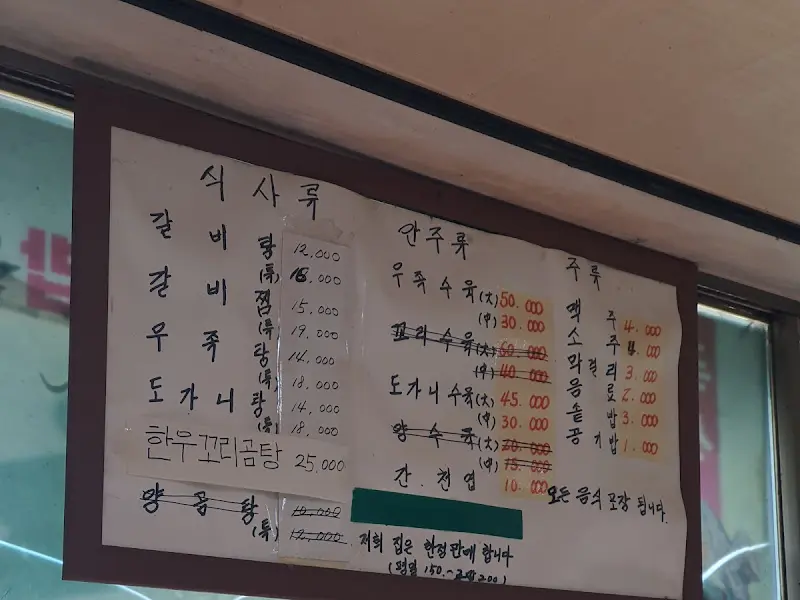 식사류
갈비탕 12,000
(특) 16,000
갈비찜 15,000
(특) 19,000
우족탕 14,000
(특) 18,000
도가니탕 14,000
(특) 18,000
한우꼬리곰탕 25,000
양곰탕 10,000
(특) 12,000
안주류
우족수육(大) 50.000
(中) 30.000
꼬리수육(大) 60.000
(中) 40.000
도가니수육(大) 45.000
(中) 30.000
양수육(大) 20.000
(中) 15.000
간.천엽 10.000
저희 집은 한정판매 합니다
(평일 150.~ 200)
주류
맥주 4.000
소주 4.000
막걸리 3.000
음료 2.000
솥밥 3.000
공기밥 1.000
모든 음식 포장 됩니다.